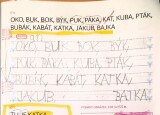 OKO, BUK, BOK, BÝK, PUK, PÁKA, KAT, KUBA, PTÁK,
BUBÁK, KABÁT, KÁTKA, JAKUB, BAJKA
OKO BUK BOK BÝK
PUK PÁKA KUBA PTÁK
BUBÁK KABÁT KATKA
JAKUB